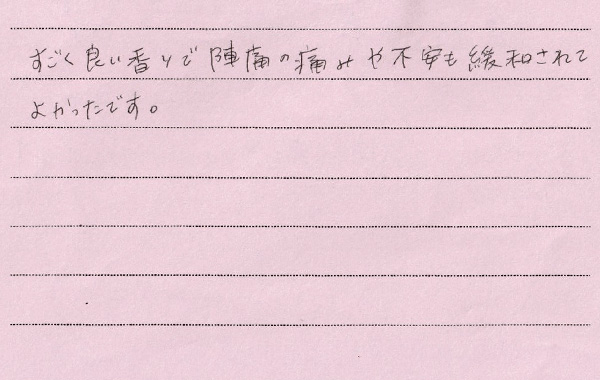 すごく良い香りで陣痛の痛みや不安も緩和されて
よかったです。